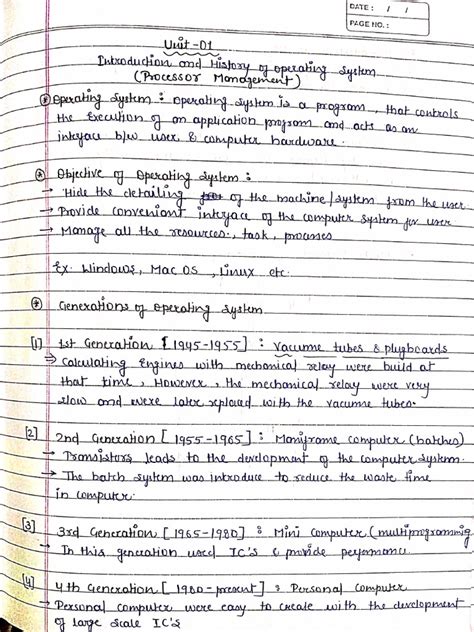 DATE: / /
PAGE NO.:
Unit-01
Introduction and History of operating System
(Processor Management)
Operating System: operating System is a program, that controls
the Execution of an application program and acts as an
inteface b/w user & computer hardware.
Objective of Operating System:
→ Hide the detailing of the machine/system from the user
→ Provide convenient inteface of the computer system for user
→ Manage all the resources, task, processes
Ex. Windows, Mac OS, Linux etc.
Generations of Operating System
[1] 1st Generation [1945-1955]: Vacume tubes & plugboards
→ Calculating Engines with mechanical relay were build at
that time, However, the mechanical relay were very
slow and were later replaced with the vacume tubes.
[2] 2nd Generation [1955-1965]: Mainframe computer (batches)
→ Transistors leads to the development of the computer System.
→ The batch system was introduce to reduce the waste time
in computer.
[3] 3rd Generation [1965-1980]: Mini Computer (multiprogrammig
→ In this generation used IC'S & provide performance.
[4] 4th Generation [1980-present]: Personal Computer
→ Personal computer were easy to create with the development
of large scale IC's